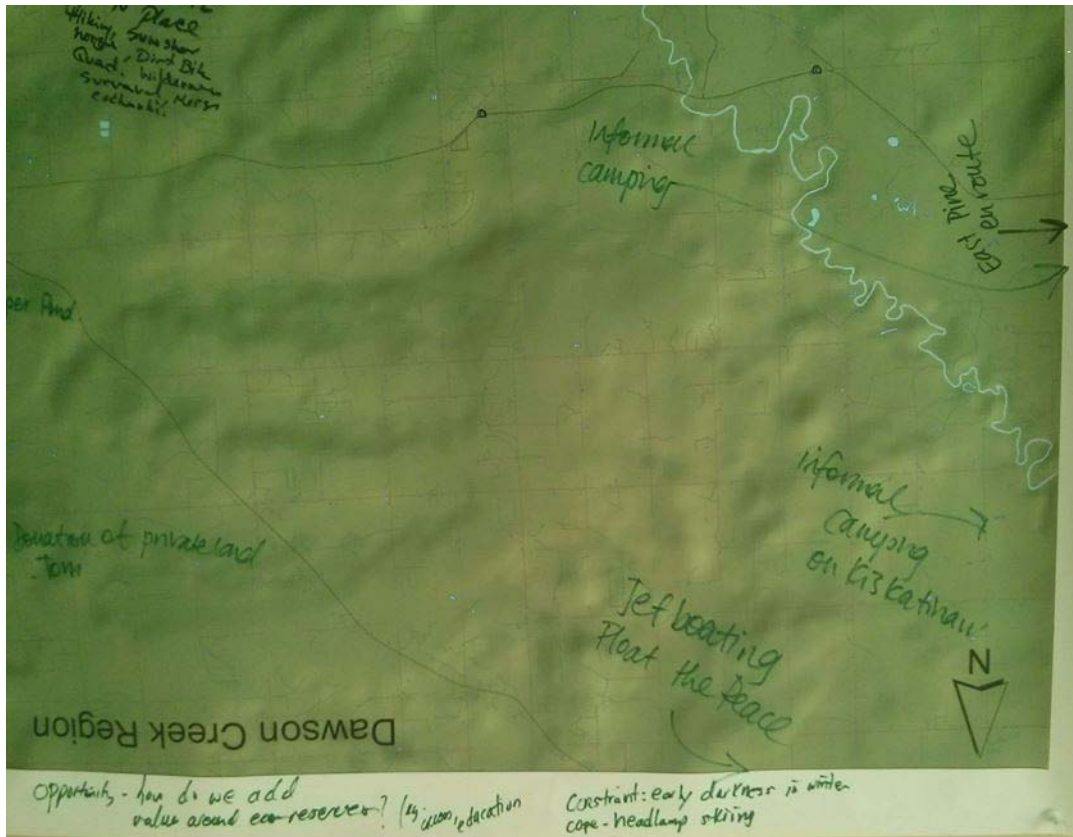 Place
Hiking,
Dirt Bike
Quad.
Informal
camping
East Pine
en route
per Pond
Informal
camping
on Kiskatinaw
Donation of private land
Tom
Jet boating
Float the Peace
N
Dawson Creek Region
Opportunity - how do we add
value around eco-reserves? (eg education
Constraint: early darkness in winter
cope - headlamp skiing